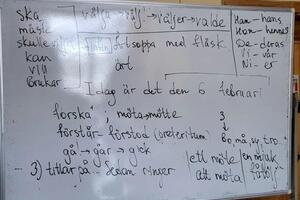 ska
måste
skulle vilja
kan
vill
brukar
välja - välj → väljer → valde
ärtsoppa med fläsk
ärt
Han - hans
Hon - hennes
De - deras
Vi - vår
Ni - er
Idag är det den 6 februari
forska ; möta - mötte
förstår - förstod (preteritum)
gå → går → gick
3) tittar på... Sedan ringer
3
↓
bo, må, sy, tro...
ett möte
att möta
en mjuk
fåtölj